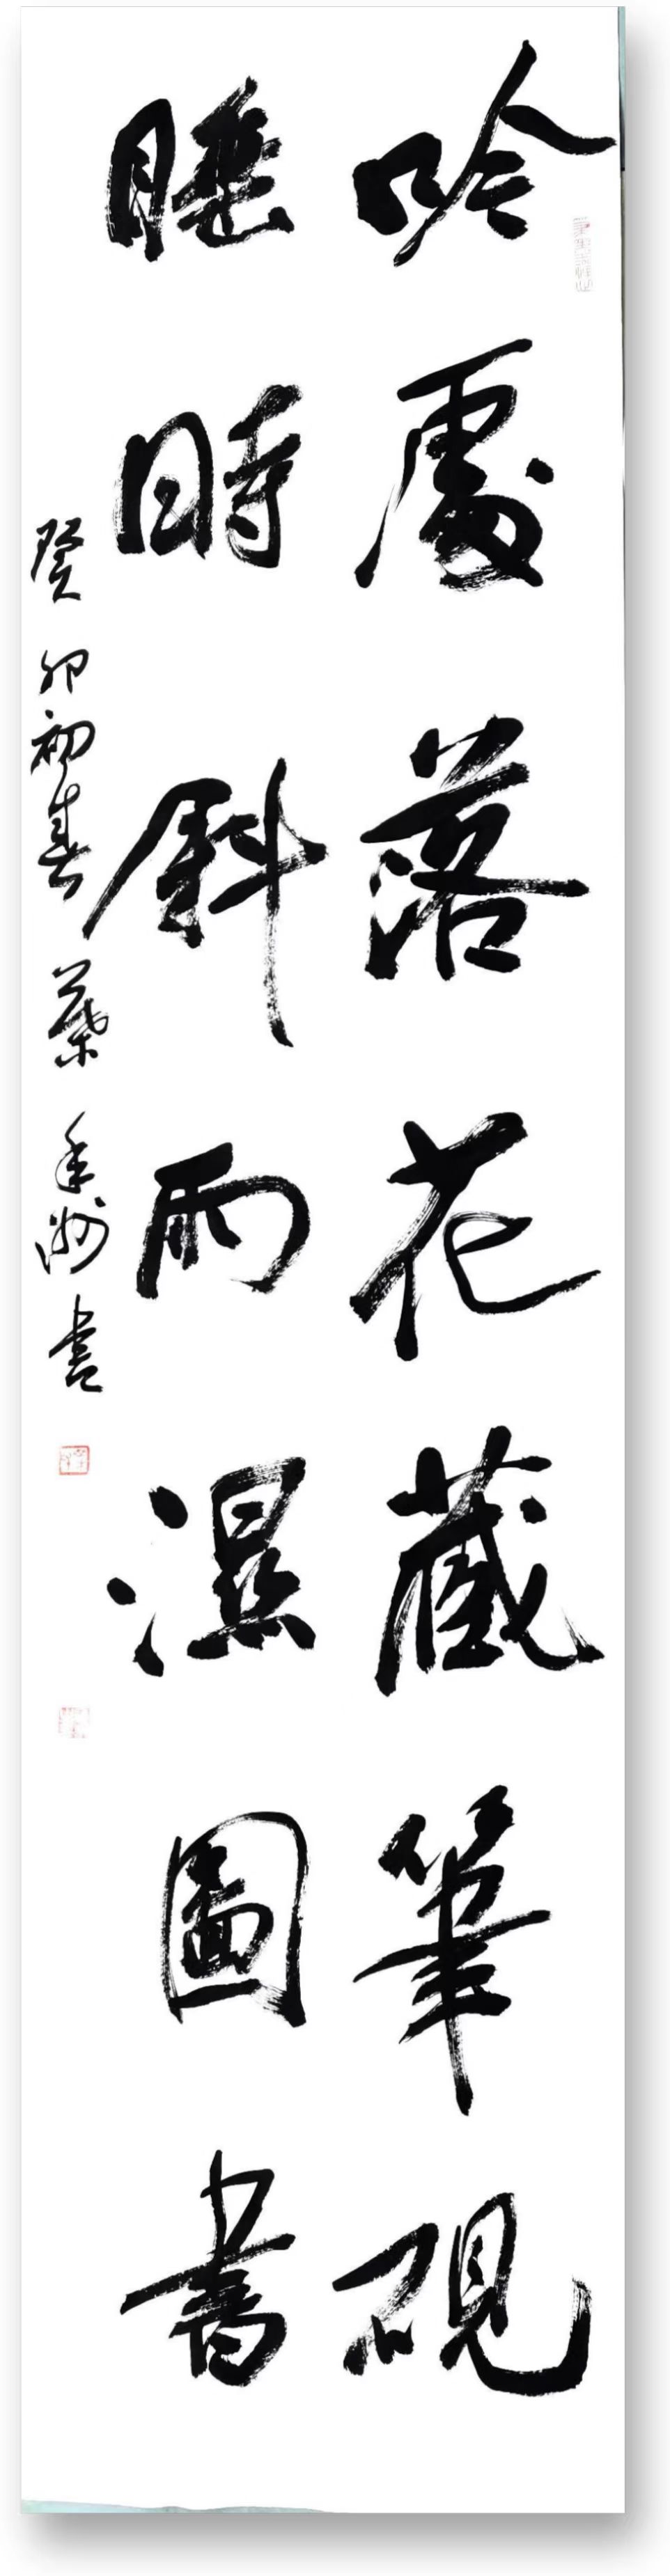 吟處落花藏筆硯
睡時斜雨濕圖書
癸卯初春葉季洲書